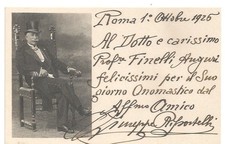 Roma 1º Ottobre 1926
Al Dotto e carissimo
Profre Finelli, Auguri
felicissimi per il Suo
giorno Onomastico dal
Affmo Amico
Giuseppe